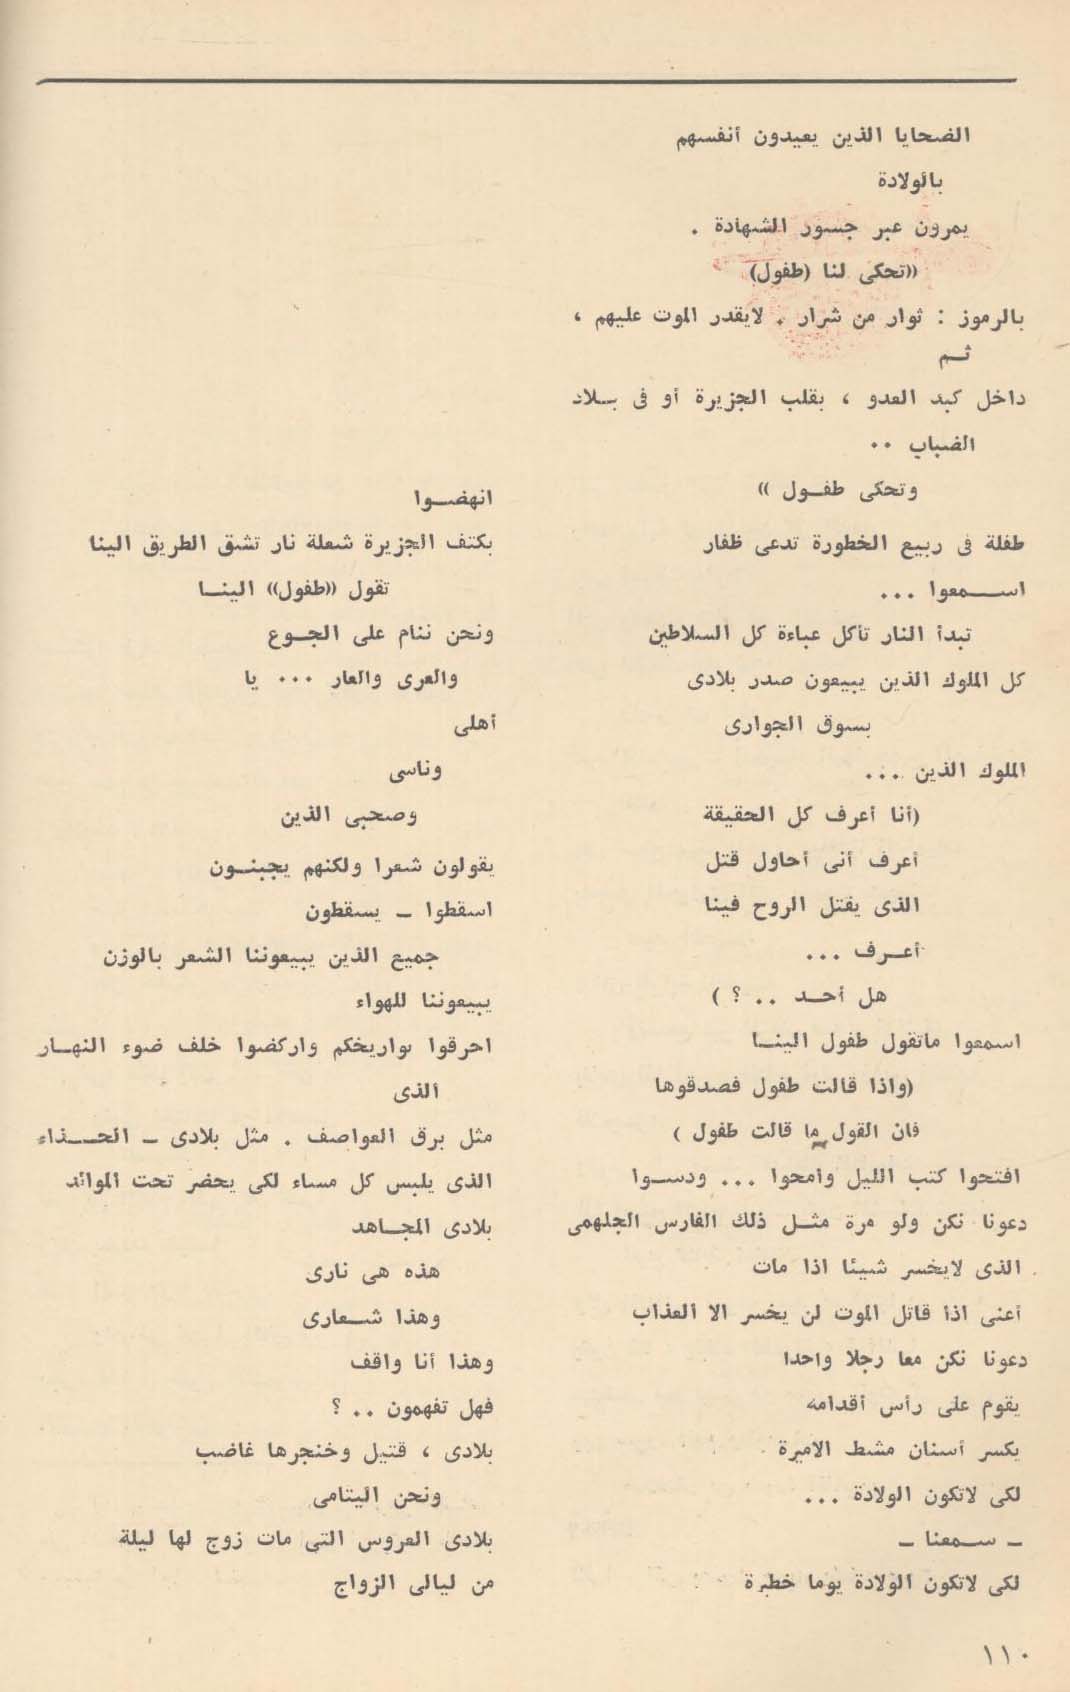 الضحايا الذين يعيدون أنفسهم
بالولادة
يمرون عبر جسور الشهادة .
«تحكى لنا (طفول)
بالرموز : ثوار من شرار . لايقدر الموت عليهم ،
ثـم
داخل كبد العدو ، بقلب الجزيرة أو فى بـلاد
الضباب ..
وتحكى طفـول »
طفلة فى ربيع الخطورة تدعى ظفار
اسـمعوا ...
تبدأ النار تأكل عباءة كل السلاطين
كل الملوك الذين يبيعون صدر بلادى
بسوق الجوارى
الملوك الذين ...
(أنا أعرف كل الحقيقة
أعرف أنى أحاول قتل
الذى يفتل الروح فينا
أعـرف ...
هل أحـد .. ؟ )
اسمعوا ماتقول طفول الينـا
(واذا قالت طفول فصدقوها
فان القول ما قالت طفول )
افتحوا كتب الليل وامحوا ... ودسـوا
دعونا نكن ولو مرة مثـل ذلك الفارس الجلهمى
الذى لايخسر شيئا اذا مات
أعنى اذا قاتل الموت لن يخسر الا العذاب
دعونا نكن معا رجلا واحدا
يقوم على رأس أقدامه
يكسر أسنان مشط الاميرة
لكى لاتكون الولادة ...
ـ سـمعنا ـ
لكى لاتكون الولادة يوما خطرة
انهضـوا
بكتف الجزيرة شعلة نار تشق الطريق الينا
تقول «طفول» الينـا
ونحن ننام على الجـوع
والعرى والعار ... يا
أهلى
وناسى
وصحبى الذين
يقولون شعرا ولكنهم يجبنـون
اسقطوا ـ يسقطون
جميع الذين يبيعوننا الشعر بالوزن
يبيعوننا للهواء
احرقوا تواريخكم واركضوا خلف ضوء النهـار
الذى
مثل برق العواصف . مثل بلادى ـ الحـذاء
الذى يلبس كل مساء لكى يحضر تحت الموائد
بلادى المجـاهد
هذه هى نارى
وهذا شـعارى
وهذا أنا واقف
فهل تفهمون .. ؟
بلادى ، قتيل وخنجرها غاضب
ونحن اليتامى
بلادى العروس التى مات زوج لها ليلة
من ليالى الزواج
١١٠